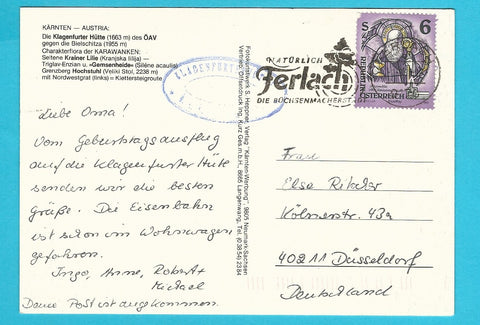 KÄRNTEN – AUSTRIA:
Die Klagenfurter Hütte (1663 m) des ÖAV
gegen die Bielschitza (1955 m)
Charakterflora der KARAWANKEN:
Seltene Krainer Lilie (Kranjska lilija) —
Triglav-Enzian u. »Gemsenheide« (Silene acaulis)
Grenzberg Hochstuhl (Veliki Stol, 2238 m)
mit Nordwestgrat (links) = Klettersteigroute
KLAGENFURTER
NATÜRLICH
Ferlach
DIE BÜCHSENMACHERSTADT
S 6
REPUBLIK
ÖSTERREICH
Liebe Oma!
Vom Geburtstagsausflug
auf die Klagenfurter Hütte
senden wir die besten
Grüße. Die Eisenbahn
ist schon im Wohnwagen
gefahren.
Ingo, Anne, Robert +
Michael
Deine Post ist angekommen.
Fotokunstwerk S. Heppner, Verlag "Kärnten-Werbung", 9805 Neumark-Sachsen
Vertrieb, Offsetdruck Ing. Kurz Ges.m.b.H., 8665 Langenwang, Tel. (0 38 54) 23 84
Frau
Else
Kölnerstr. 43a
40211 Düsseldorf
Deutschland